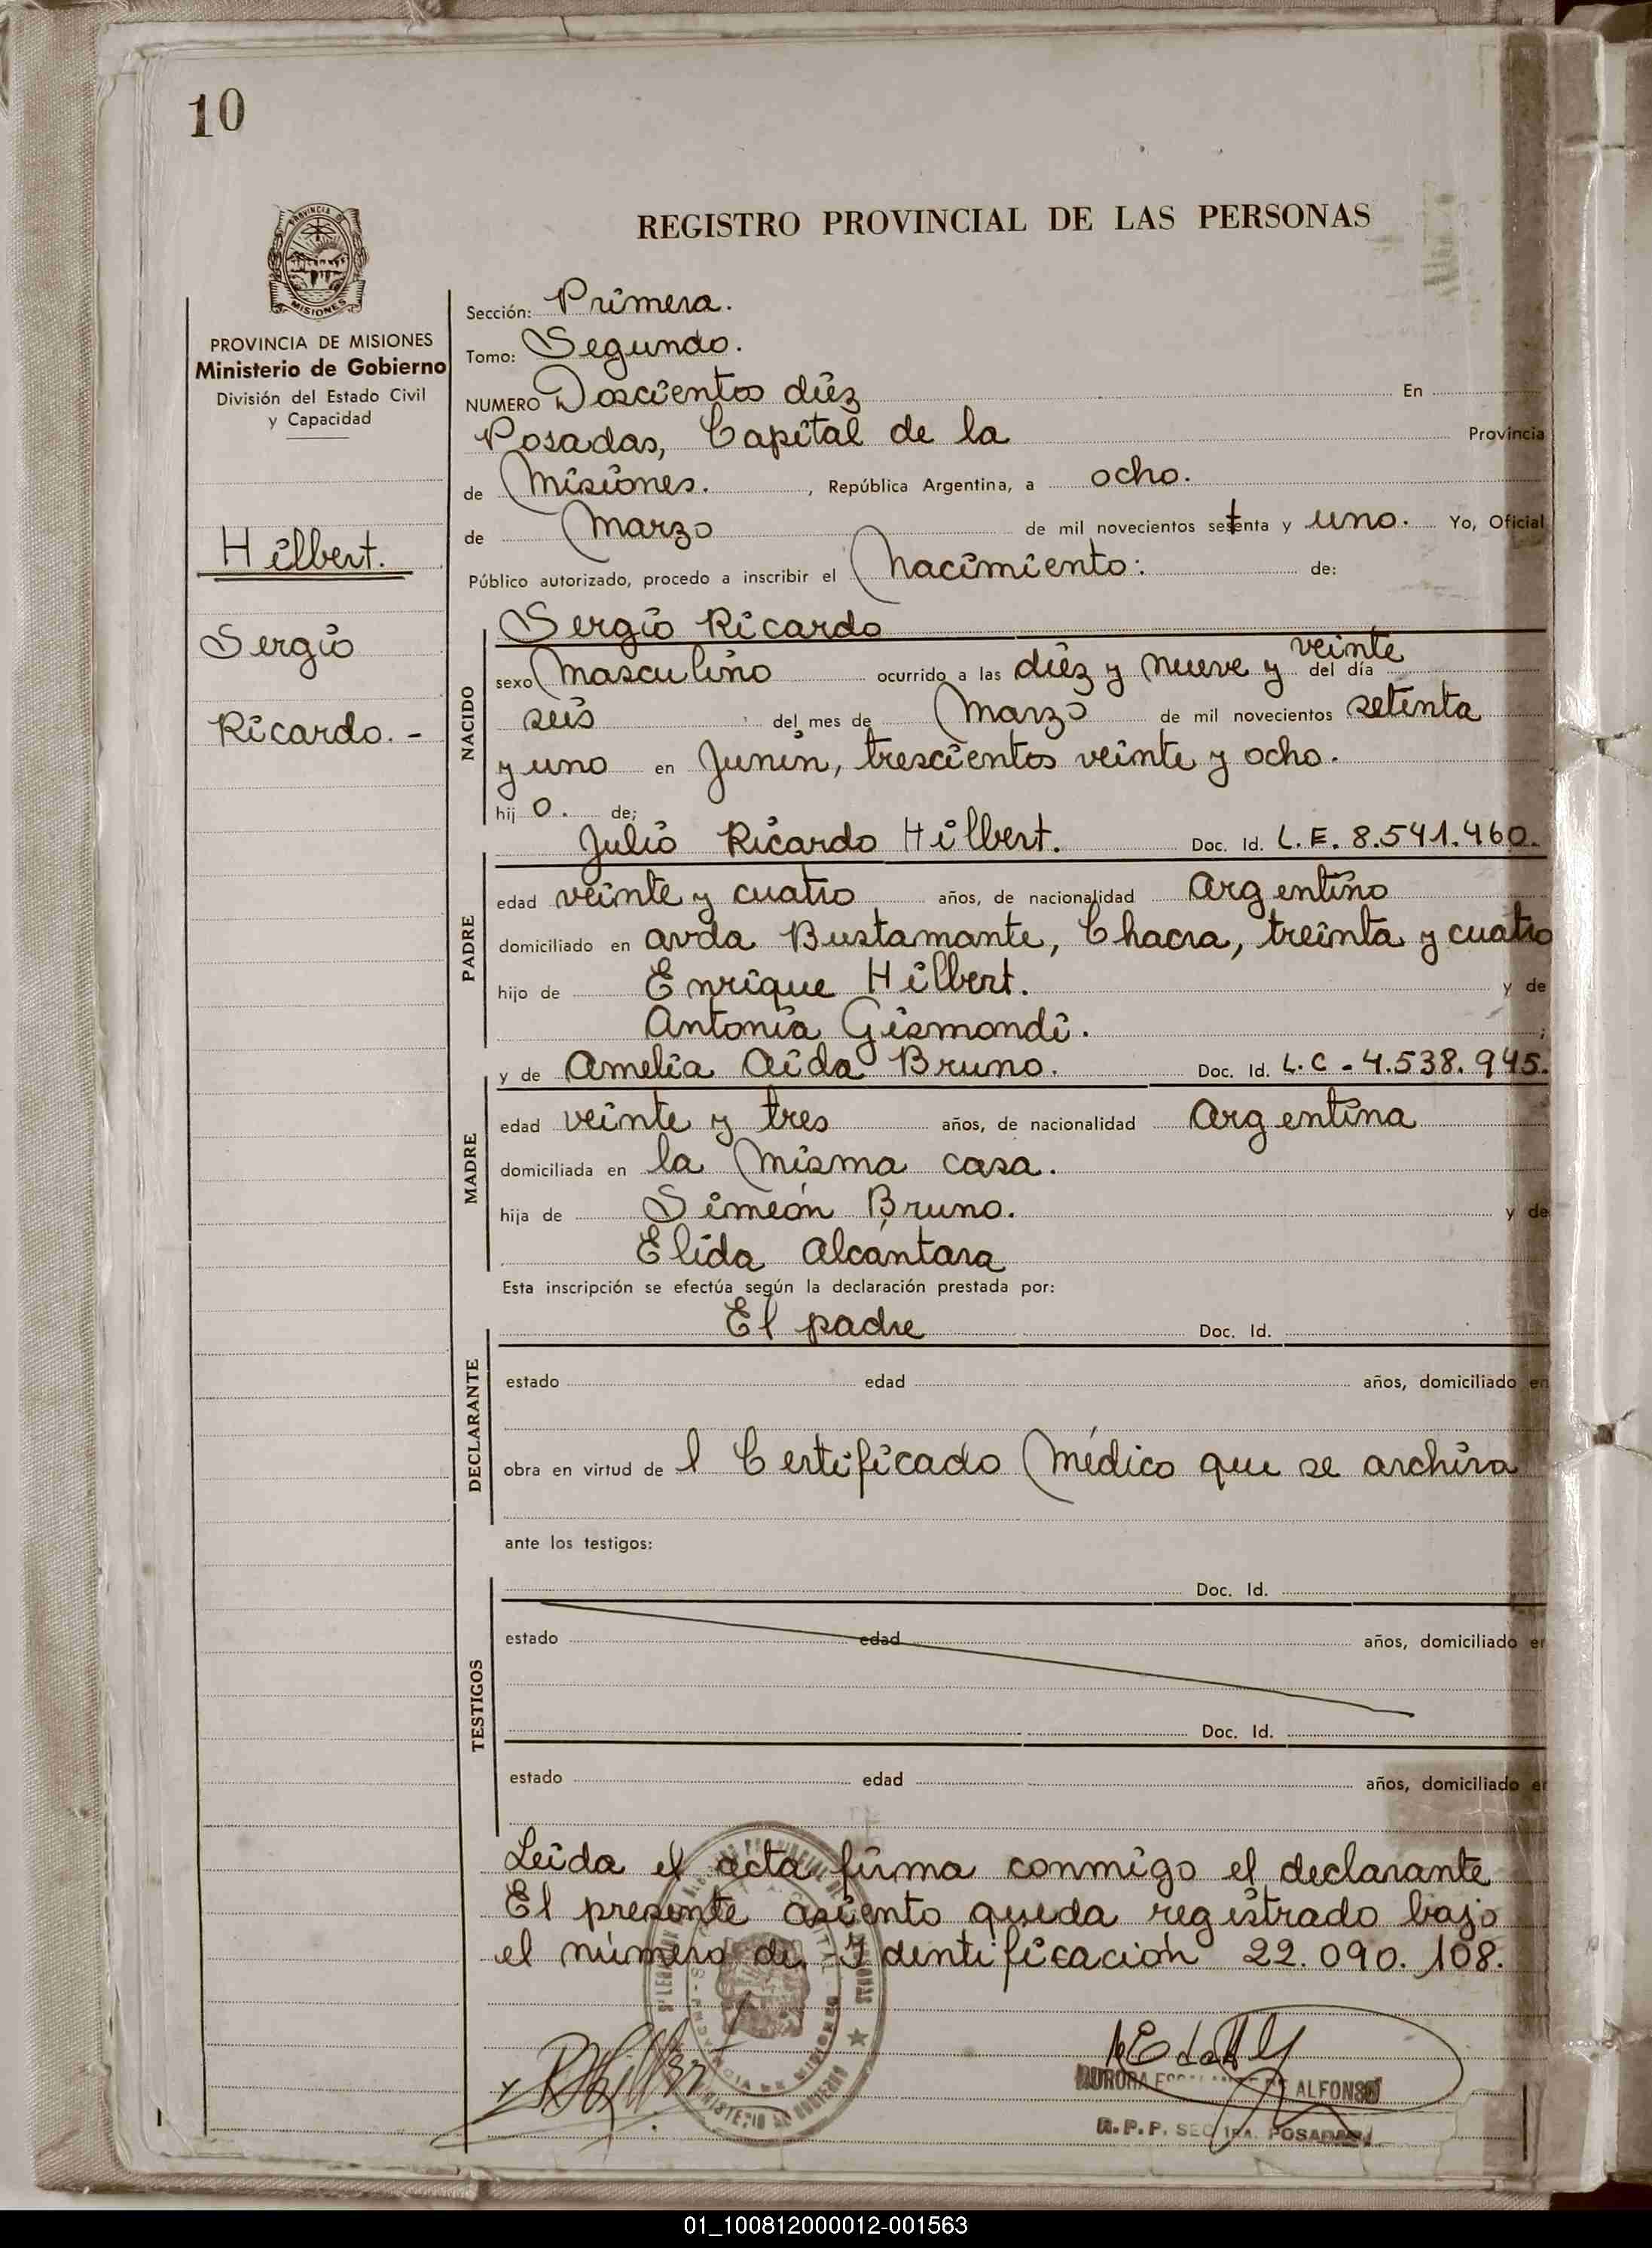 10
PROVINCIA DE
MISIONES
PROVINCIA DE MISIONES
Ministerio de Gobierno
División del Estado Civil
y Capacidad
Hilbert.
Sergio
Ricardo. -
REGISTRO PROVINCIAL DE LAS PERSONAS
Sección: Primera.
Tomo: Segundo.
NUMERO Doscientos diéz En
Posadas, Capital de la Provincia
de Misiones. , República Argentina, a ocho.
de Marzo de mil novecientos setenta y uno. Yo, Oficial
Público autorizado, procedo a inscribir el Nacimiento: de:
NACIDO
Sergio Ricardo
sexo Masculino ocurrido a las diéz y nueve y del día veinte
seis del mes de Marzo de mil novecientos setenta
y uno en Junín, trescientos veinte y ocho.
hij o. de;
Julio Ricardo Hilbert. Doc. Id. L.E. 8.541.460.
PADRE
edad veinte y cuatro años, de nacionalidad Argentino
domiciliado en avda Bustamante, Chacra, treinta y cuatro
hijo de Enrique Hilbert. y de
Antonia Gismondi. ;
y de Amelia Aida Bruno. Doc. Id. L.C - 4.538.945.
MADRE
edad veinte y tres años, de nacionalidad Argentina
domiciliada en la misma casa.
hija de Simeón Bruno. y de
Elida Alcántara
Esta inscripción se efectúa según la declaración prestada por:
El padre Doc. Id.
DECLARANTE
estado edad años, domiciliado en
obra en virtud de l Certificado Médico que se archiva
ante los testigos:
Doc. Id.
TESTIGOS
estado edad años, domiciliado en
Doc. Id.
estado edad años, domiciliado en
Leida el acta firma conmigo el declarante
El presente asiento queda registrado bajo
el número de Identificación 22.090.108.
AURORA ESCALANTE DE ALFONSO
R.P.P. SEC. 1RA. POSADAS
01_100812000012-001563